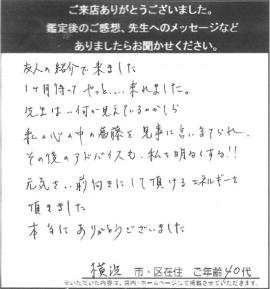 ご来店ありがとうございました。
鑑定後のご感想、先生へのメッセージなど
ありましたらお聞かせください。
友人の紹介で来ました
1ヶ月待って やっと…来れました。
先生は…何が見えているのかしら
私の心の中の葛藤を見事に言い当てられ
その後のアドバイスも、私を明るくする!!
元気を…前向きにして頂けるエネルギーを
頂きました
本当に ありがとうございました
横浜 市・区在住 ご年齢 40代
※いただいた内容は、店内・ホームページにて掲載させていただきます。